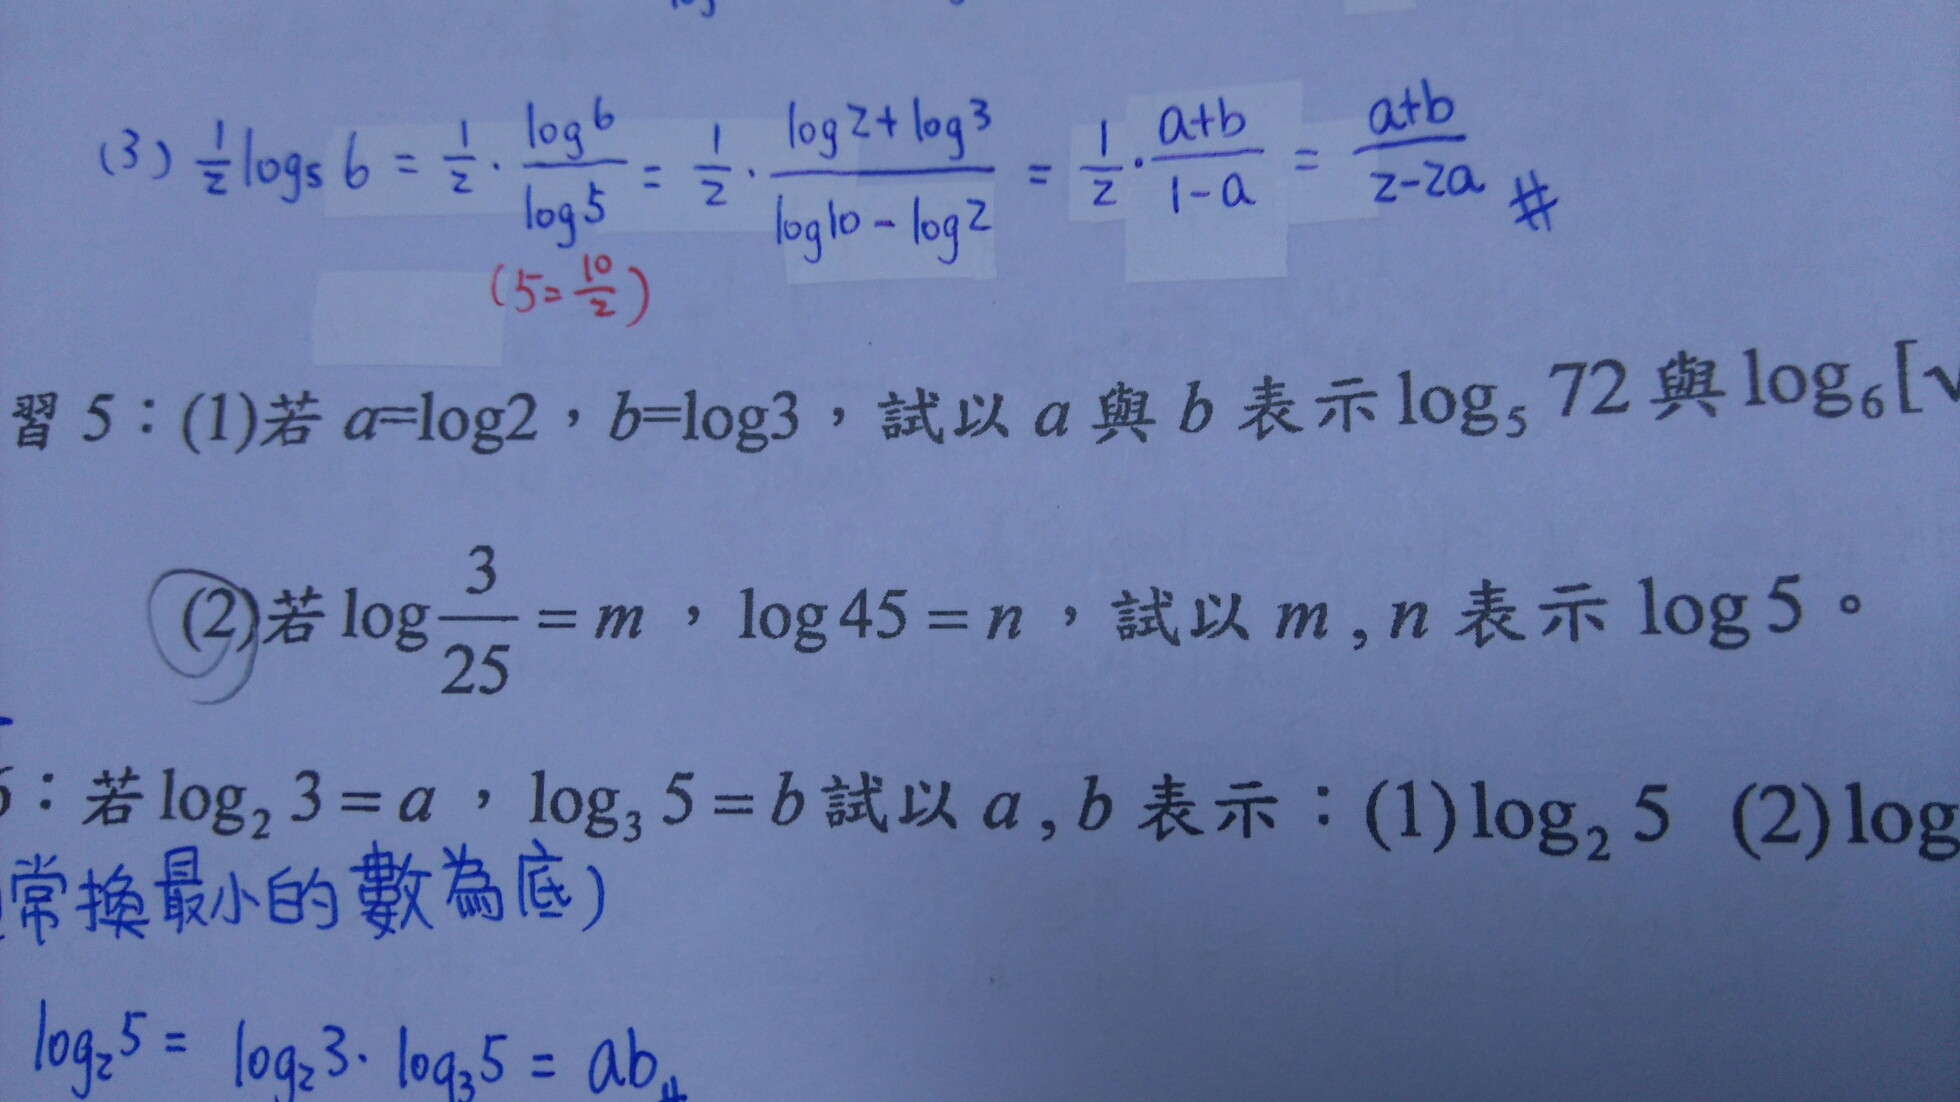 (3) ½log₅ 6 = ½ · log6/log5 = ½ · (log2+log3)/(log10-log2) = ½ · (a+b)/(1-a) = (a+b)/(2-2a) #
(5=10/2)
習 5：(1)若 a=log2，b=log3，試以 a 與 b 表示 log₅ 72 與 log₆[√
(2)若 log 3/25 = m ，log 45 = n ，試以 m , n 表示 log 5 。
：若 log₂ 3 = a ，log₃ 5 = b 試以 a , b 表示：(1) log₂ 5 (2) log
常換最小的數為底)
log₂5 = log₂3 · log₃5 = ab #